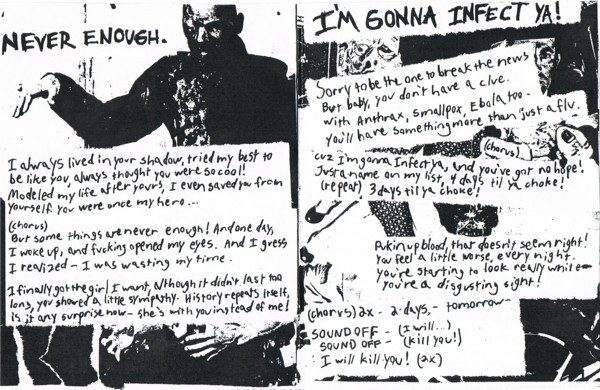 NEVER ENOUGH.
I always lived in your shadow, tried my best to
be like you, always thought you were so cool!
Modeled my life after yours, I even saved you from
yourself. you were once my hero...
(chorus)
But some things are never enough! And one day,
I woke up, and fucking opened my eyes. And I guess
I realized - I was wasting my time.
I finally got the girl I want, although it didn't last too
long, you showed a little sympathy. History repeats itself,
is it any surprise now - she's with you instead of me!
I'M GONNA INFECT YA!
Sorry to be the one to break the news
But baby, you don't have a clue.
With Anthrax, smallpox, Ebola too -
You'll have something more than just a flu.
(chorus)
cuz I'm gonna Infect ya, and you've got no hope!
Just a name on my list, 4 days til ya choke!
(repeat) 3 days til ya choke!
Pukin up blood, that doesn't seem right!
You feel a little worse, every night.
You're starting to look really white -
you're a disgusting sight!
(chorus) 2x - 2 days, - tomorrow -
SOUND OFF - (I will...)
SOUND OFF - (kill you!)
I will kill you! (2x)